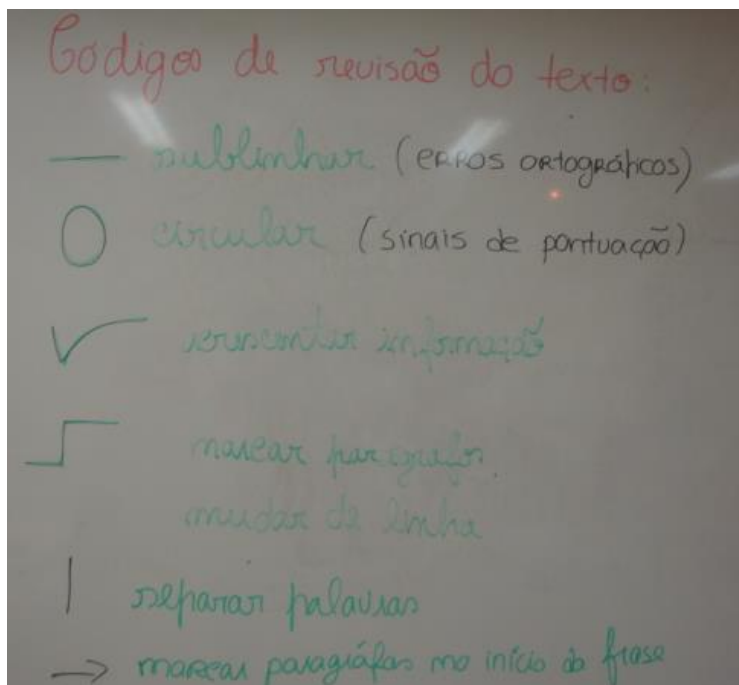 Codigos de revisão do texto:
— sublinhar (erros ortográficos)
O circular (sinais de pontuação)
acrescentar informação
marcar paragrafos
mudar de linha
| separar palavras
→ marcar paragráfos no início da frase